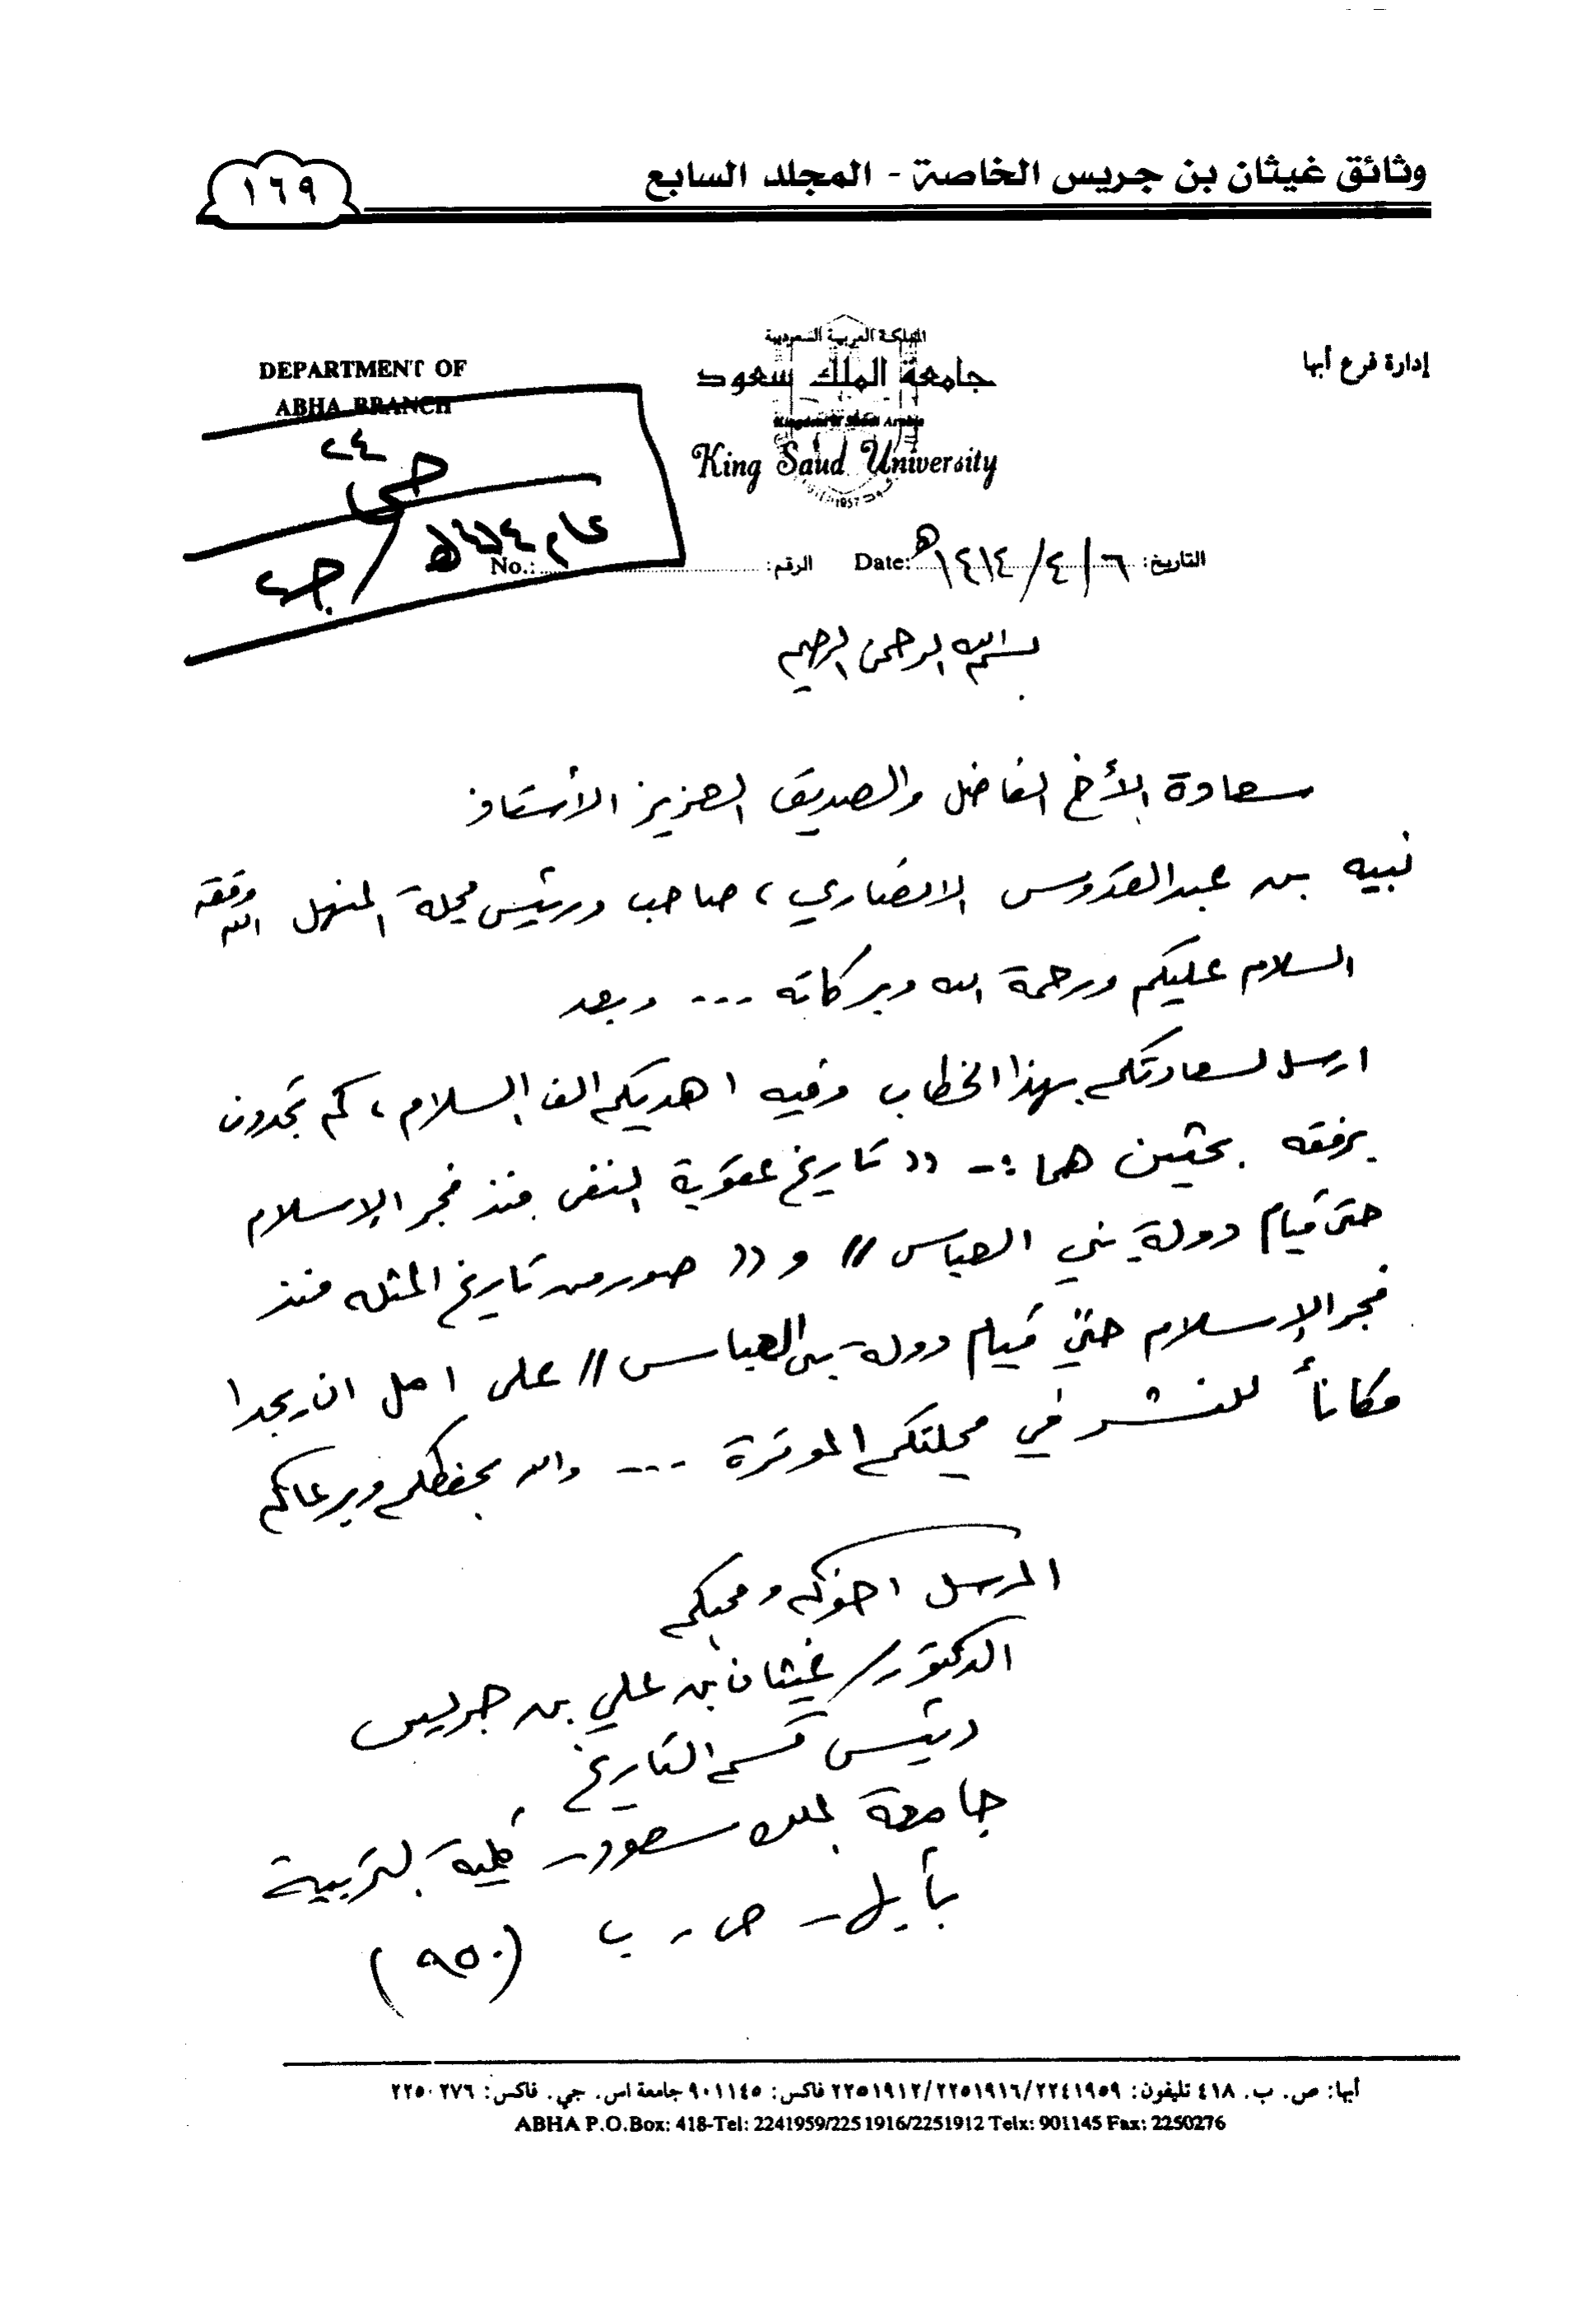 وثائق غيثان بن جريس الخاصة - المجلد السابع
١٦٩
إدارة فرع أبها
المملكة العربية السعودية
جامعة الملك سعود
Kingdom of Saudi Arabia
King Saud University
1957
DEPARTMENT OF
ABHA BRANCH
ص ٢٤
عام ١٤١٤هـ / ج٢
التاريخ: ٦/٤/١٤١٤هـ Date: الرقم: No.:
بسم الله الرحمن الرحيم
سعادة الأخ الفاضل والصديق العزيز الأستاذ
نبيه بن عبدالقدوس الانصاري، صاحب ورئيس مجلة المنهل وفقه الله
السلام عليكم ورحمة الله وبركاته --- وبعد
ارسل لسعادتكم بهذا الخطاب وفيه اهديكم الف السلام، كم تجدون
برفقه بحثين هما :- ((تاريخ عقوبة النفى منذ فجر الإسلام
حتى قيام دولة بني العباس)) و ((صور من تاريخ المثله منذ
فجر الإسلام حتى قيام دولة بنى العباس)) على امل ان يجدا
مكاناً للنشر في مجلتكم الموقرة --- والله يحفظكم ويرعاكم
المرسل اخوكم ومحبكم
الدكتور/ غيثان بن علي بن جريس
رئيس قسم التاريخ
جامعة الملك سعود - كلية التربية
بأبها - ص . ب (٩٥٠)
أبها: ص. ب. ٤١٨ تليفون: ٢٢٤١٩٥٩/٢٢٥١٩١٦/٢٢٥١٩١٢ فاكس: ٩٠١١٤٥ جامعة اس. جي. فاكس: ٢٢٥٠٢٧٦
ABHA P.O.Box: 418-Tel: 2241959/225 1916/2251912 Telx: 901145 Fax: 2250276